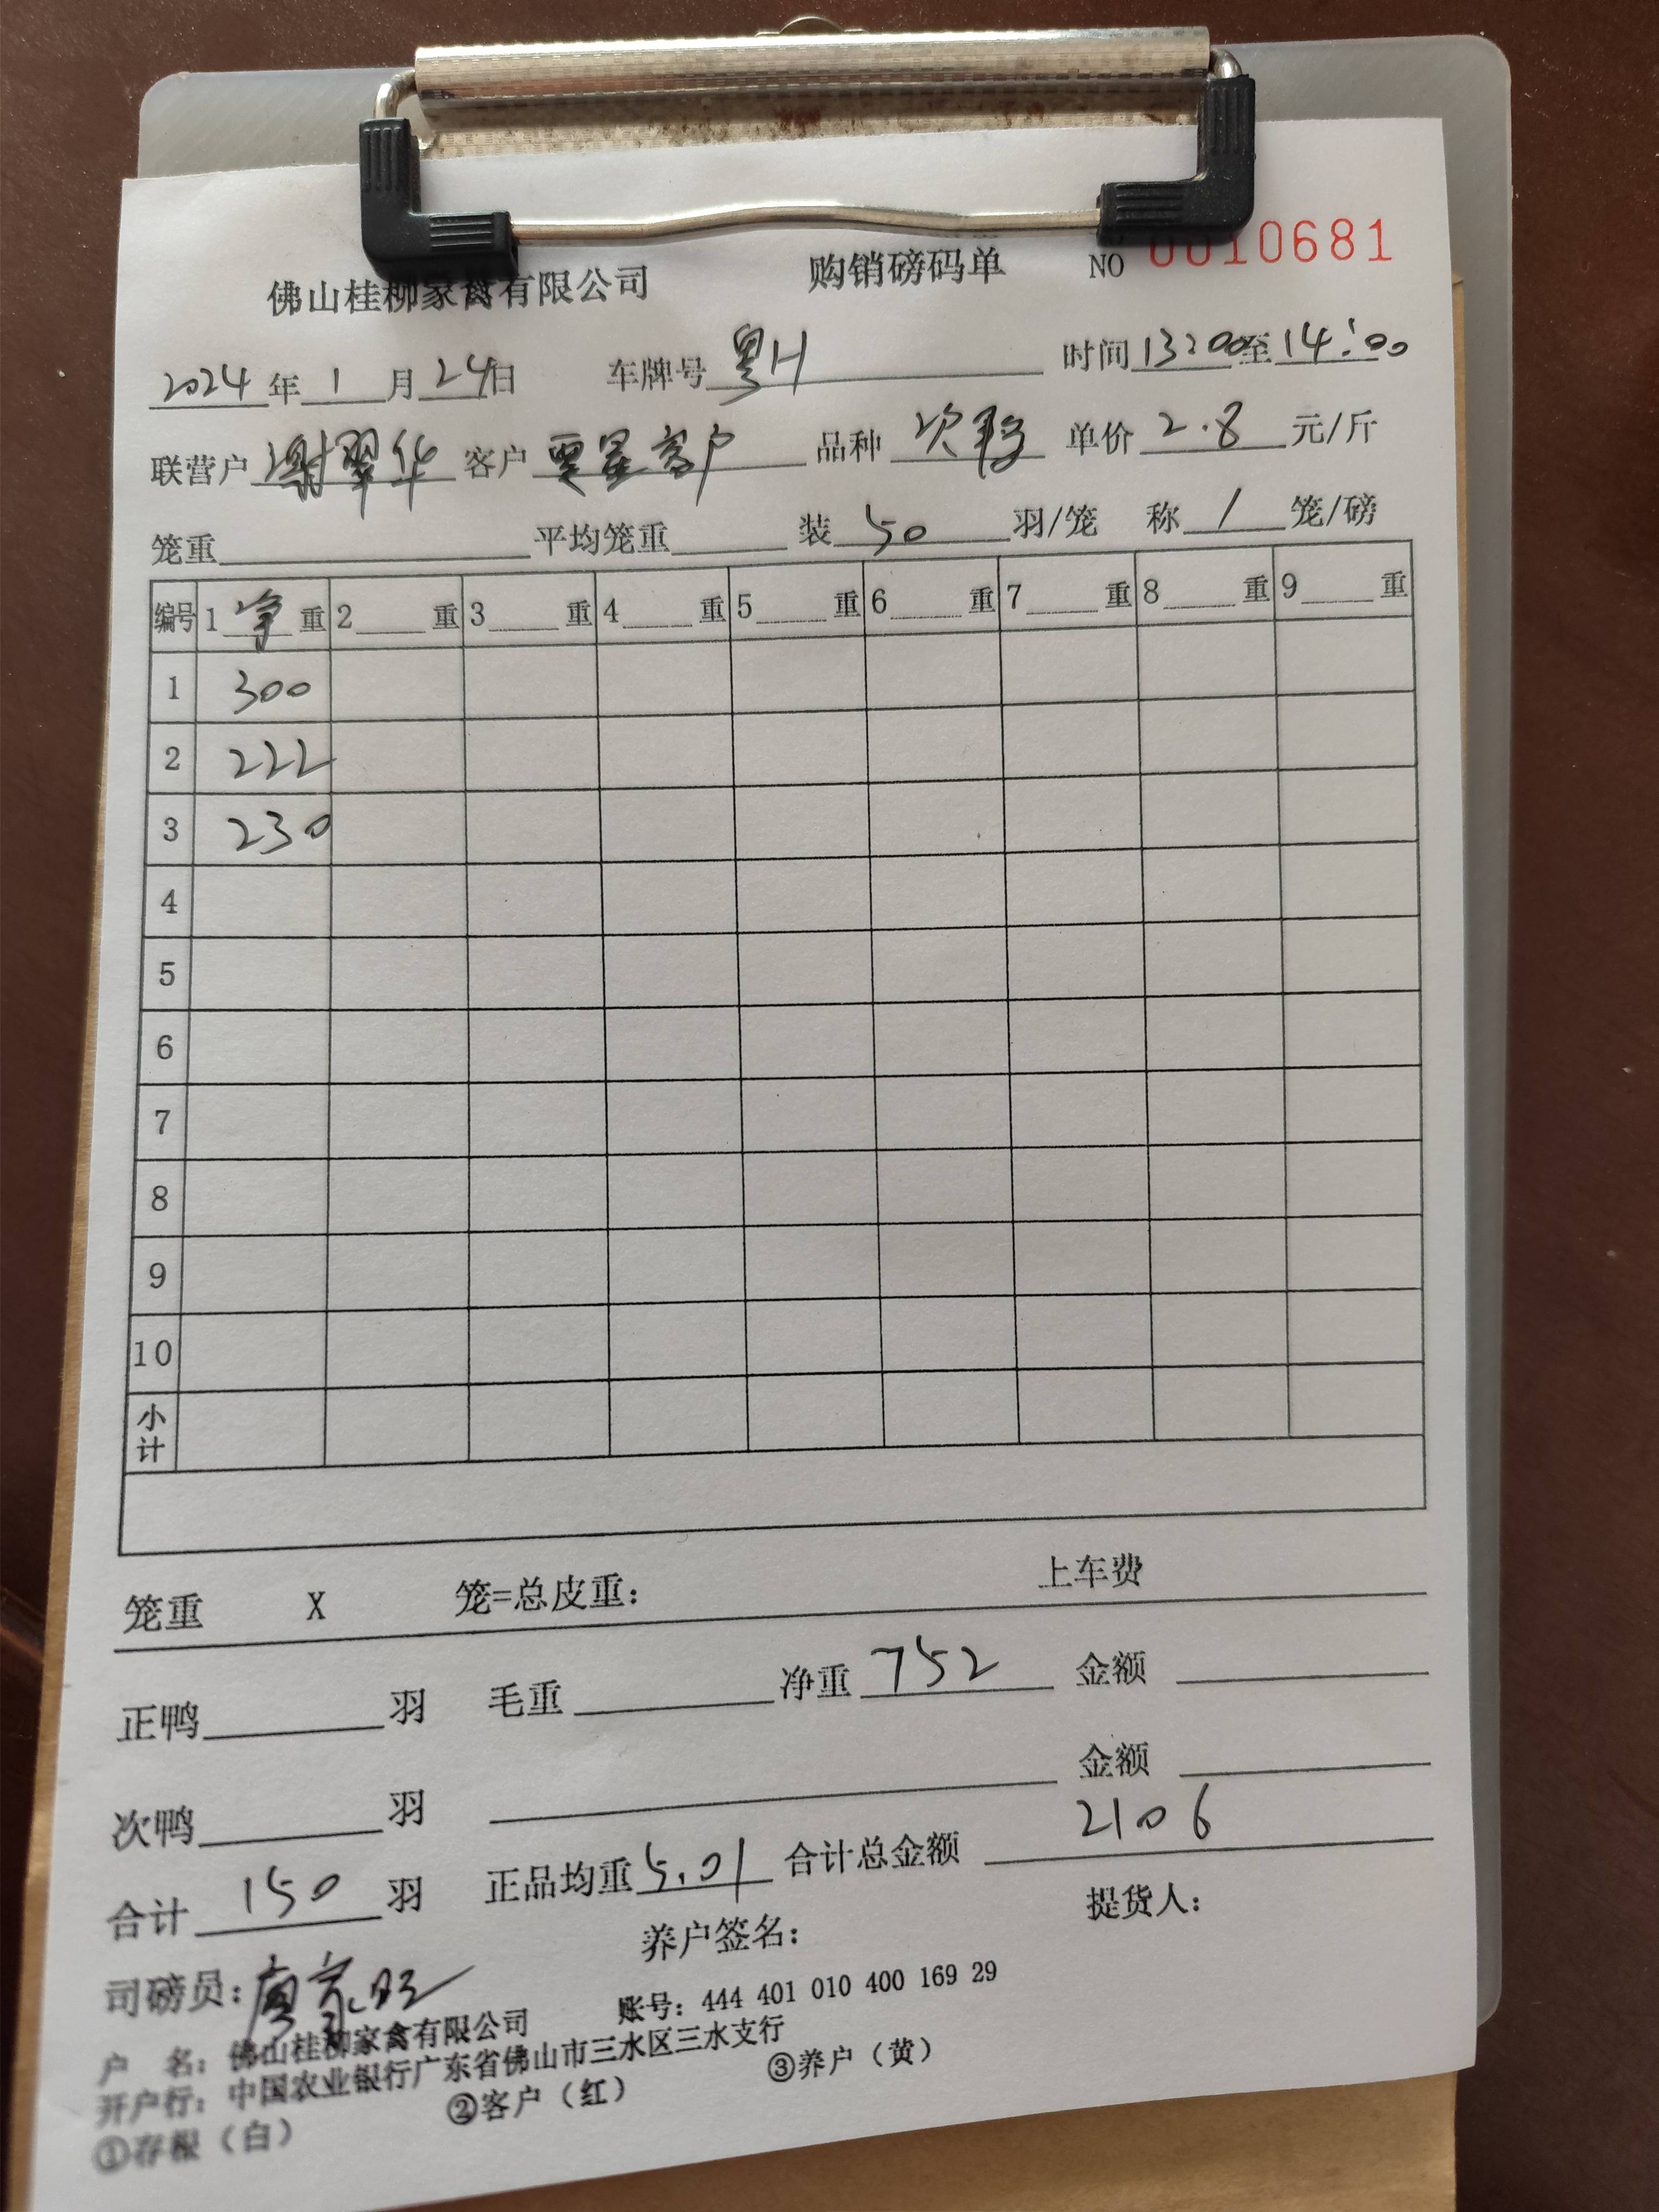 佛山桂柳家禽有限公司 购销磅码单 NO 0010681
2024年1月24日 车牌号 粤H 时间13:00至14:00
联营户 谢翠华 客户 客户 品种 次 单价 2.8 元/斤
笼重 平均笼重 装 50 羽/笼 称 1 笼/磅
编号 1 净 重 2 重 3 重 4 重 5 重 6 重 7 重 8 重 9 重
1 300
2 222
3 230
4
5
6
7
8
9
10
小计
笼重 X 笼=总皮重： 上车费
正鸭 羽 毛重 净重 752 金额
次鸭 羽 金额
合计 150 羽 正品均重 5.01 合计总金额 2106
司磅员：廖家旺 养户签名： 提货人：
户 名：佛山桂柳家禽有限公司 账号：444 401 010 400 169 29
开户行：中国农业银行广东省佛山市三水区三水支行
①存根（白） ②客户（红） ③养户（黄）